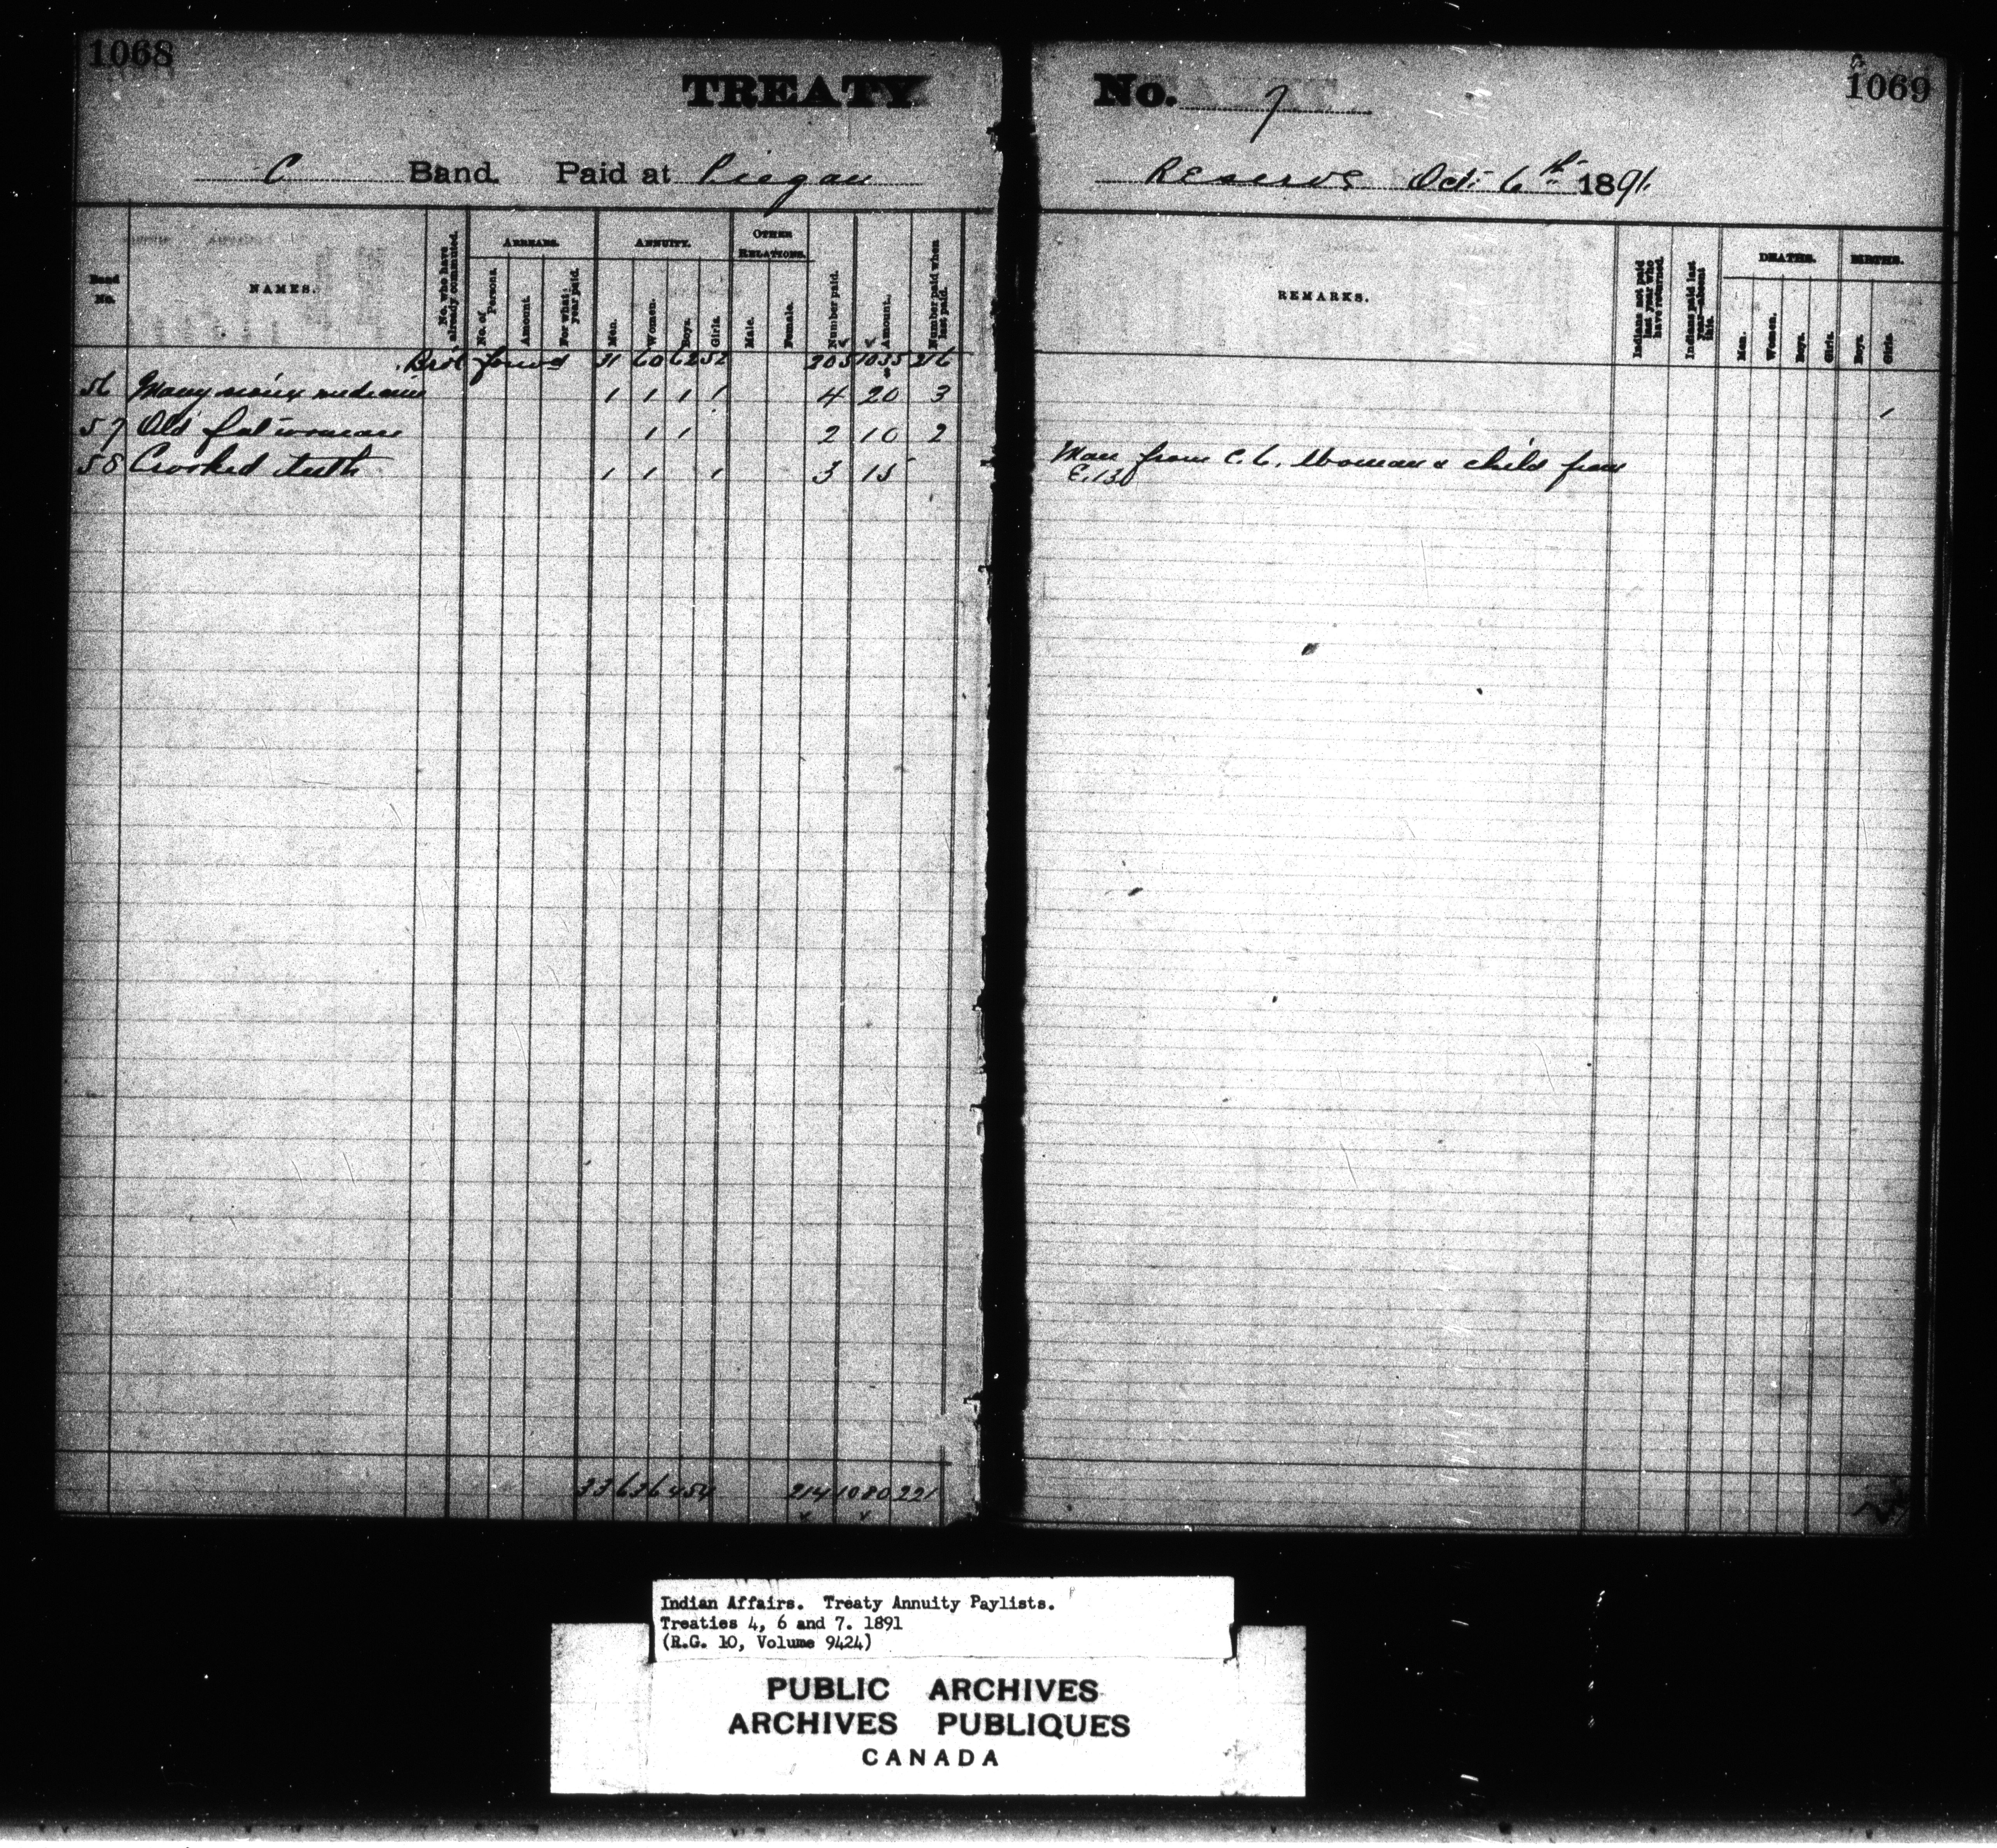 1068
TREATY
C Band. Paid at Piegan
Band No.
NAMES.
No. who have already commuted.
ARREARS.
No. of Persons.
Amount.
For what year paid.
ANNUITY.
Men.
Women.
Boys.
Girls.
OTHER RELATIONS.
Male.
Female.
Number paid.
Amount.
Number paid when last paid.
Brot forwd 31 60 62 52 205 1035 216
56 Many medicine 1 1 1 1 4 20 3
57 Old fat woman 1 1 2 10 2
58 Crooked teeth 1 1 1 3 15
33 63 64 54 214 1080 221
No. 7
1069
Reserve Oct. 6th 1891.
REMARKS.
Indians not paid last year who have returned.
Indians paid last year—absent this.
DEATHS.
Men.
Women.
Boys.
Girls.
BIRTHS.
Boys.
Girls.
1
Man from C.6. Woman & child from
E.13
Indian Affairs. Treaty Annuity Paylists.
Treaties 4, 6 and 7. 1891
(R.G. 10, Volume 9424)
PUBLIC ARCHIVES
ARCHIVES PUBLIQUES
CANADA